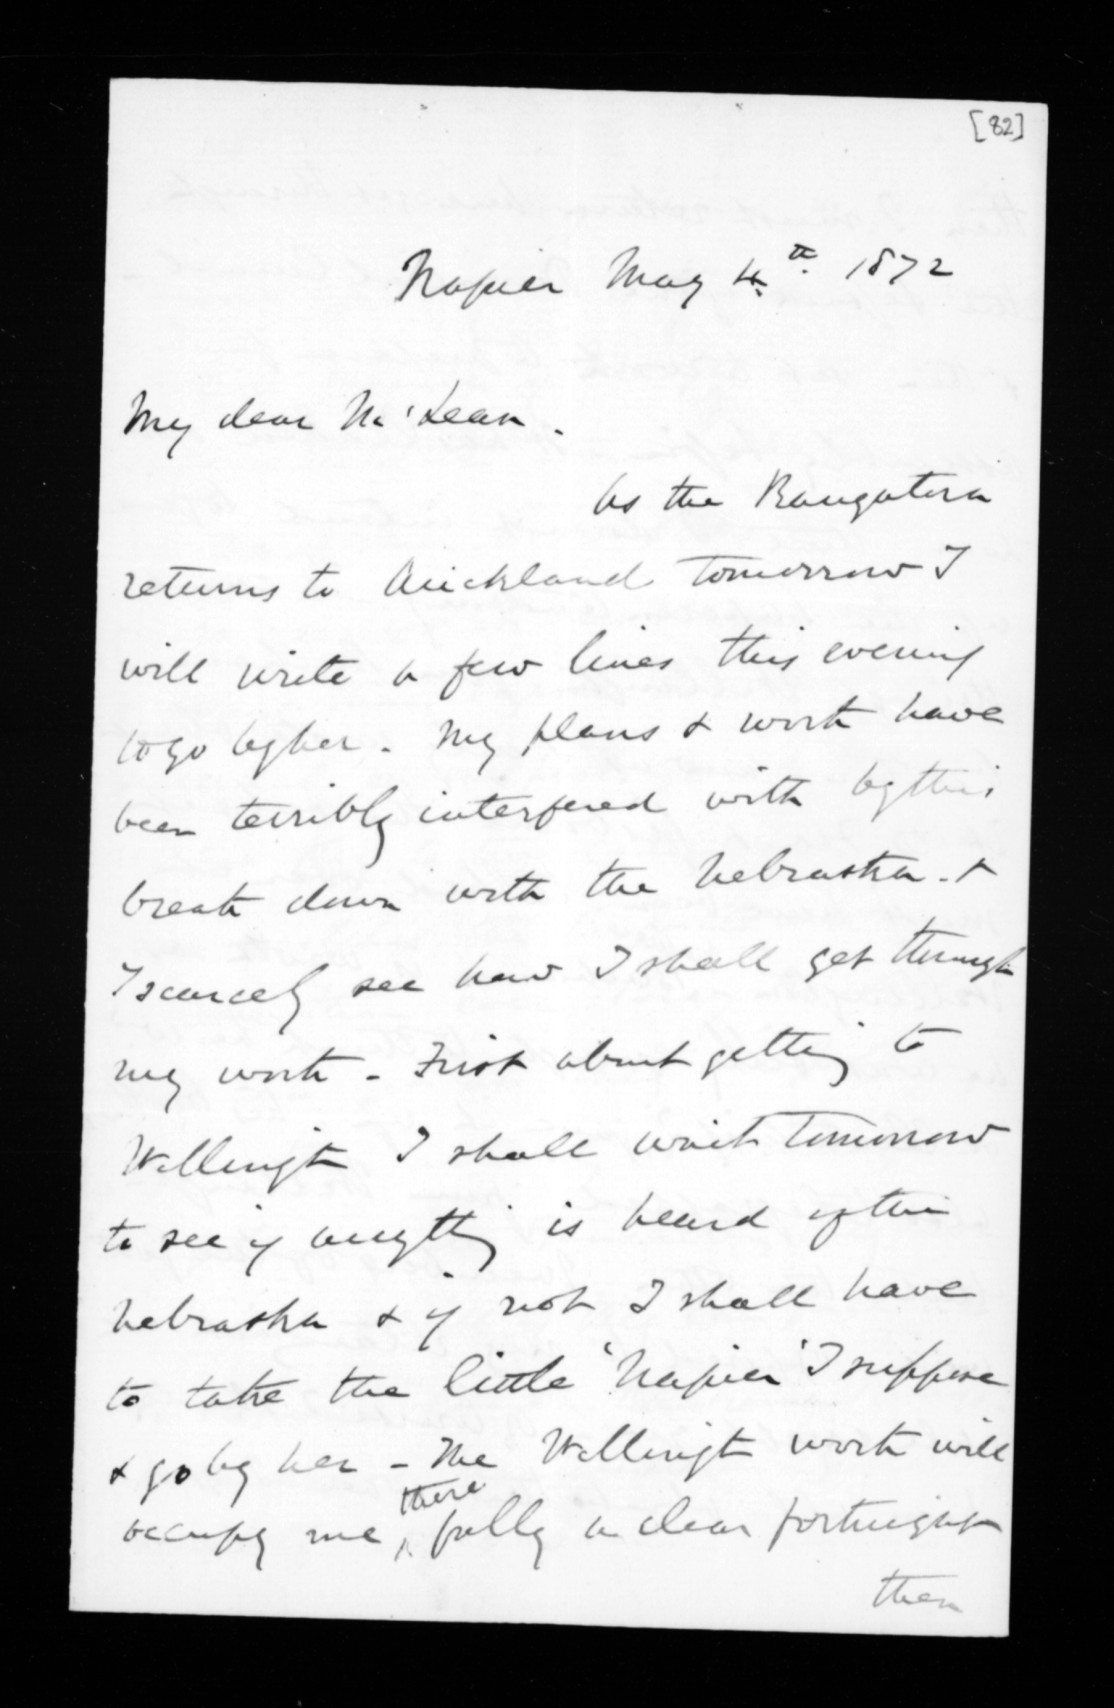 [82]
Napier May 4th. 1872
My dear McLean.
As the Rangatira
returns to Auckland tomorrow I
will write a few lines this evening
to go by her. My plans & work have
been terribly interfered with by this
break down with the Nebraska. &
I scarcely see how I shall get through
my work - First about getting to
Wellingtn I shall wait tomorrow
to see if anything is heard of the
Nebraska & if not I shall have
to take the little 'Napier' I suppose
& go by her - The Wellingtn work will
there
occupy me ^ fully a clear fortnight
then